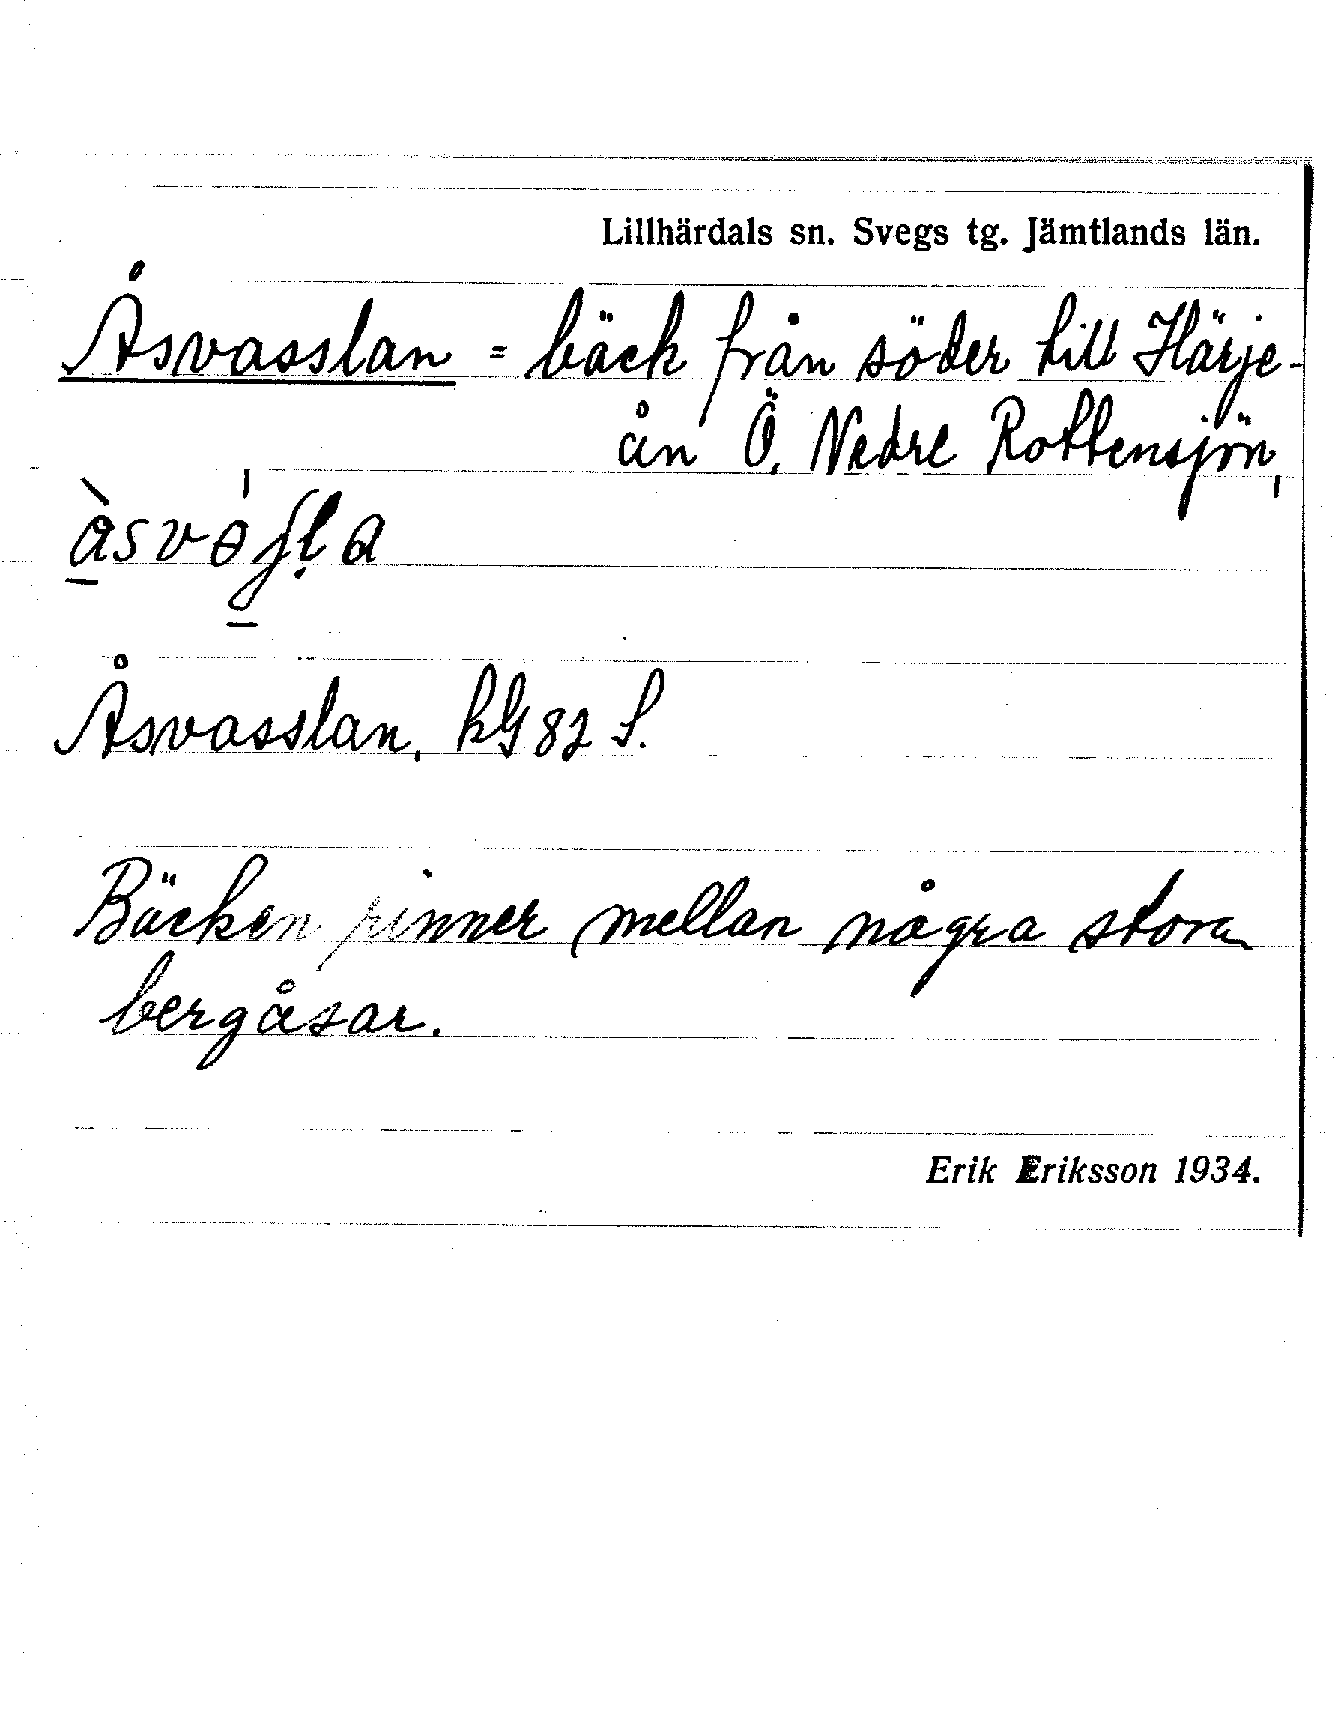 Lillhärdals sn. Svegs tg. Jämtlands län.
Åsvasslan = bäck från söder till Härje-
ån Ö. Nedre Rottensjön,
Åsvasslan, kG 82 S.
Bäcken rinner mellan några stora
bergåsar.
Erik Eriksson 1934.